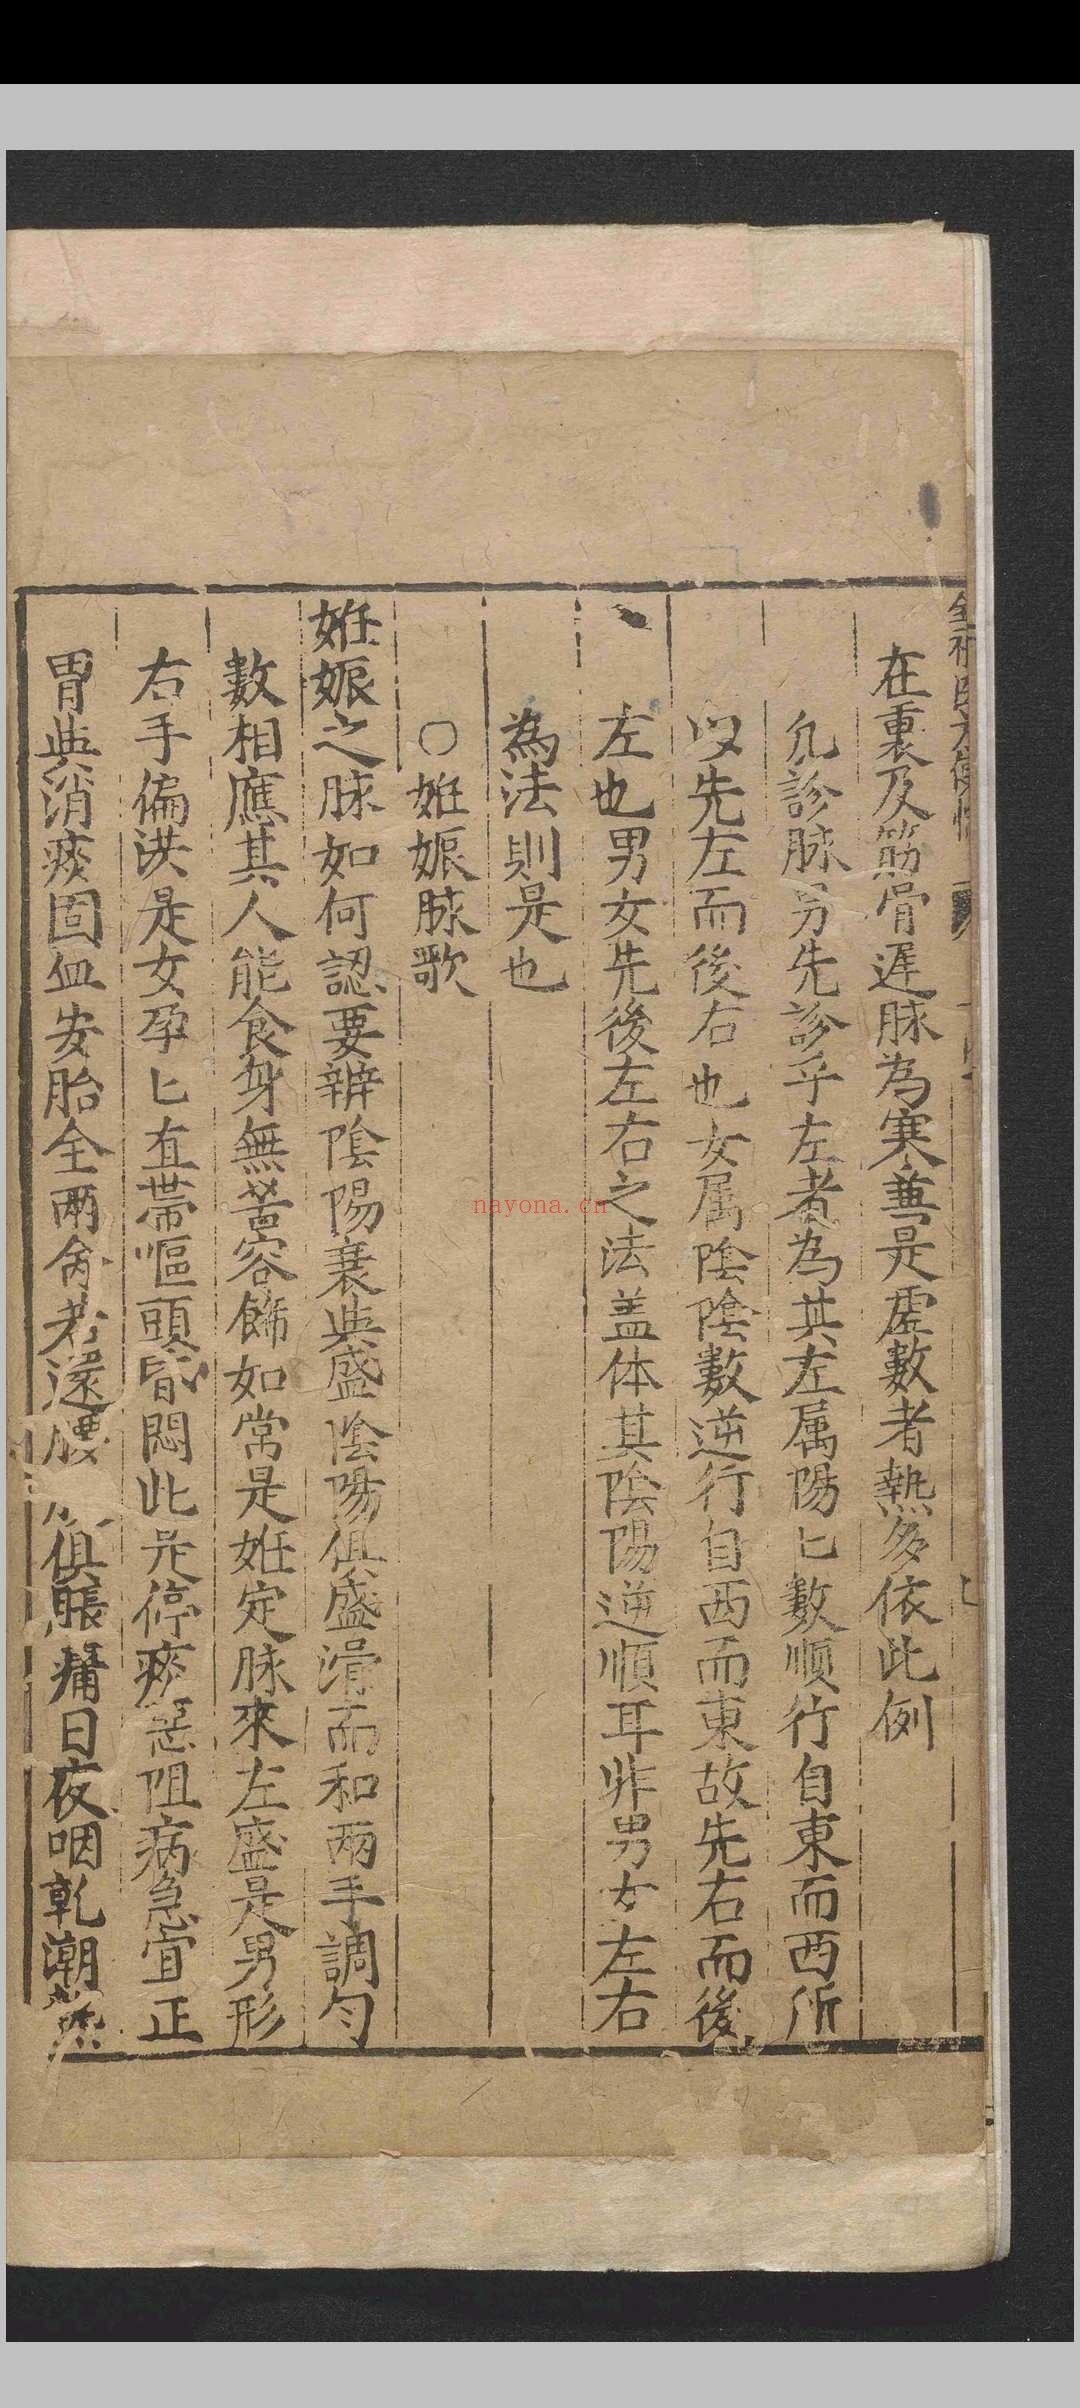 在裏及筋骨遲脉為寒兼是虛數者熱多依此例
凢診脉男先診乎左者為其左属陽匕數順行自東而西所
以先左而後右也女属陰陰數逆行自西而東故先右而後
左也男女先後左右之法盖体其陰陽逆順耳非男女左右
為法則是也
○姙娠脉歌
姙娠之脉如何認要辨陰陽衰與盛陰陽俱盛滑而和兩手調勻
數相應其人能食身無苦容飾如常是姙定脉來左盛是男形
右手偏洪是女孕匕直帶嘔頭昏悶此是停痰惡阻病急宜正
胃與消痰固血安胎全兩命若還腰 俱脹痛日夜咽乾潮熱
nayona.cn